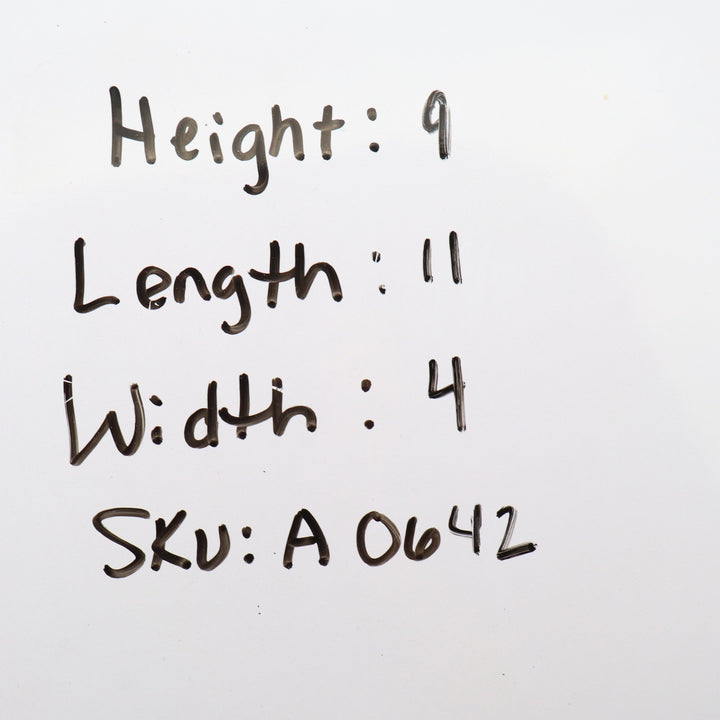 Height: 9
Length: 11
Width: 4
SKU: A0642